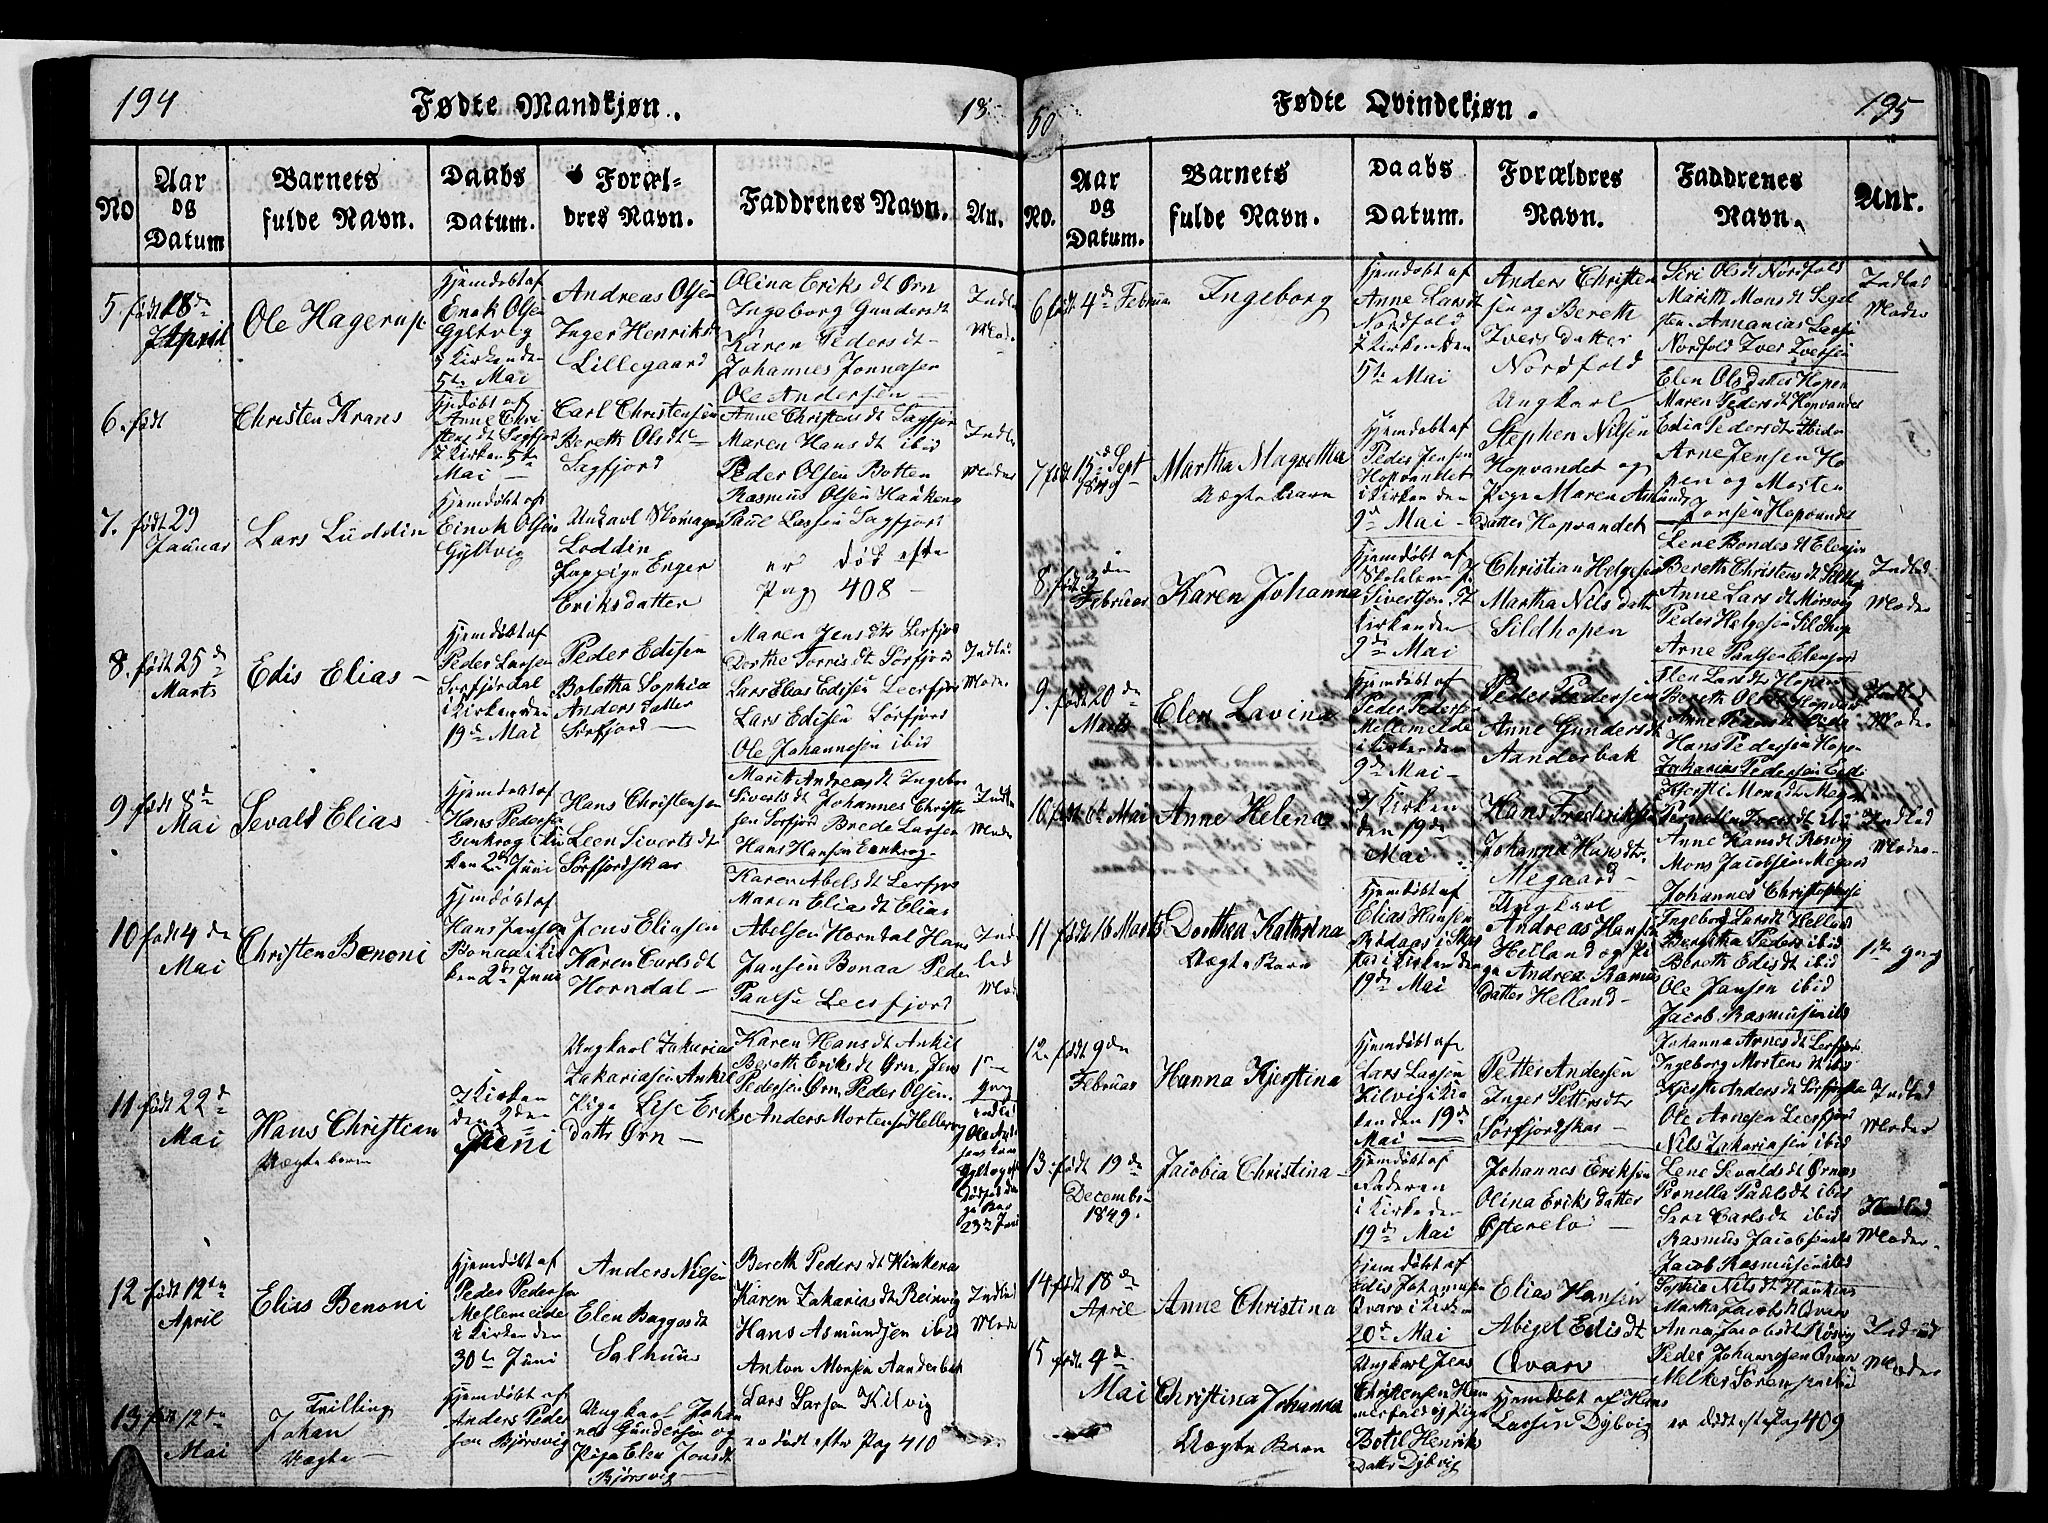 194
Fødte Mandkjøn.
18
No
Aar
og
Datum
Barnets
fulde Navn.
Daabs
Datum.
Foræl-
dres Navn.
Faddrenes Navn.
An.
5 født 18de
April
Ole Hagerup
Hjemdøbt af
Enok Olsen
Gyltvig
i Kirken den
5te Mai
Andreas Olsen
Inger Henriksdt
Lillegaard
Olina Eriksdt Ørn
Ingeborg Gundersdt
Karen Pedersdt
Johannes Jonnasen
Ole Andersen
Indle
Moder
6. født
Christen Krans
Hjdøbt af
Anne Chri
stensdt Sagfjor
i Kirken 5te
Mai
Carl Christensen
Bereth Olsdt
Sagfjord
Anne Christensdt Sagfjor
Maren Hansdt ibid
Peder Olsen Botten
Rasmus Olsen Haukens
Paul Larsen Sagfjord
Indle
Moder
7. født 29
Januar
Lars Luddin
Hjemdøbt af
Einok Olsen
Gyltvig
Unkarl Skomager
Loddin
Lappige Enger
Eriksdatter
er død efte
Pag 408
8. født 25de
Marts
Edis Elias
Hjemdøbt af
Peder Larsen
Sørfjordal
i Kirken den
19de Mai
Peder Edisen
Boletha Sophia
Andersdatter
Sørfjord
Maren Jensdtr Lerfjord
Dorthe Torrisdt Sørfjord
Lars Elias Edisen Leerfjor
Lars Edisen Sørfjord
Ole Johannesen ibid
Indle
Moder
9 født 8de
Mai
Sevald Elias
Hjemdøbt af
Hans Pedersen
Eenkrog i Kir
ken 2den Juni
Hans Christensen
Leen Sivertsdt
Sørfjordskar
Marith Andreasdt Ingebor
Sivertsdt Johannes Christen
sen Sørfjord Brede Larsen
Hans Hansen Eenkrog
Indle
Moder
10 født 4de
Mai
Christen Benoni
Hjemdøbt af
Hans Jansen
Bonaa i Kir
ken 2den Juni
Jens Eliasen
Karen Carlsdt
Horndal
Karen Abelsdt Lerfjor
Maren Eliasdt Elias
Abelsen Horndal Hans
Jansen Bonaa Peder
Paulsen Leerfjord
Ind
led
Moder
11 født 22de
Mai
Hans Christian
Uægte barn
I Kirken
den 2den
Juni
Ungkarl Zakarias
Zakariasen Ankil
Pige Lise Eriks
Datter Ørn
Karen Hansdt Ankil
Bereth Eriksdt Ørn, Jens
Pedersen Ørn Peder Olsen
Anders Mortensen Hellevig
1ste
gang
12 født 12te
April
Elias Benoni
Hjemdøbt af
Peder Pedersen
Mellemeide
i Kirken den
30te Juni
Anders Nilsen
Elen Baggasdt
Salhuus
Bereth Pedersdt Hinkenes
Karen Zakariasdt Reinvig
Hans Asmundsen ibid
Anton Monsen Aanderbak
Indled
Moder
13 født 12te
Mai
Tvilling
Johan
Uægte
Hjemdøbt af
Anders Peder
sen Bjørsvig
Ungkarl Johan
nes Gundersen og
Pige Elen Jonsdt
Bjørsvig
Lars Larsen Kilvig
er død efter Pag 410
50
Fødte Qvindekjøn.
195
No.
Aar
og
Datum.
Barnets
fulde Navn.
Daabs
Datum.
Forældres
Navn.
Faddrenes
Navn.
Anr.
6 født 4de Februar
Ingeborg
Hjemdøbt af
Anne Larsdt
Nordfold
I Kirken den
5te Mai
Anders Christen
sen og Bereth
Ivers datter
Nordfold
Siri Olsdt Nordfold
Marith Monsdt Segel
sten Annanias Larsen
Nordfold Iver Iversen
Indled
Moder
7 født 15de Sept
1849
Martha Magretha
Uægte Barn
Hjemdøbt af
Peder Jensen
Hopvandet
i Kirken den
9de Mai
Ungkarl
Stephen Nilsen
Hopvandet og
Pige Maren Arnds
Datter Hopvandet
Elen Olsdatter Hopen
Maren Pedersdt Hopvandet
Edia Pedersdtr Ibid
Arne Jensen Ho
pen og Morten
Jonsen Hopvandet
8. født 3die
Februar
Karen Johanna
Hjemdøbt af
Skolelærer J.
Sivertsen I
Kirken den
9de Mai
Christian Helgesen
Martha Nilsdatt
Sildhopen
Lene Bondesdt Elenjor
Bereth Christensdt Sildhop
Anne Larsdt Mørsvig
Peder Helgesen Sildhop
Arne Paulsen Elenjord
Indled
Moder
9. født 20de
Marts
Elen Lavina
Hjemdøbt af
Peder Pedersen
Mellemeide
i Kirken den
9de Mai
Peder Pedersen
Anne Gundersdt
Aanderbak
Elen Larsdt Hopen
Bereth Olsdt Hopvand
Anne Pedersdt Eide
Hans Pedersen Hopen
Zakarias Pedersen Eide
Indled
Moder
10 født 6te Mai
Anne Helena
I Kirken
den 19de
Mai
Hans Frederiksen
Johanna Hansdtr
Megaard
Kjersti Monsdtr Megaard
Anne Hansdt Røsvig
Mons Jacobsen Megard
Johannes Christophersen
Indled
Moder
11 født 16 Marts
Dorthea Kathrina
Uægte Barn
Hjemdøbt af
Elias Hansen
Rødaas i Skjer
i Kirken den
19de Mai
Ungkarl
Andreas Hansen
Helland og Pi
ge Andrea Rasmus
Datter Helland
Ingeborg Larsdt Helland
Beritha Pedersdt ibid
Bereth Edisdt ibid
Ole Jansen ibid
Jacob Rasmusen ibid
1ste gang
12. født 9den
Februar
Hanna Kjerstina
Hjemdøbt af
Lars Larsen
Kilvig i Kir
ken den 19de
Mai
Petter Andersen
Inger Pettersdtr
Sørfjordskar
Johanna Arnesdt Lerfjord
Ingeborg Mortensdt ibid
Kjersti Andersdt Sørfjorskar
Ole Arnesen Leerfjord
Nils Zakariasen ibid
Indled
Moder
13. født 19de
December
1849.
Jacobia Christina
Hjemdøbt af
Faderen
i Kirken den
19de Mai
Johannes Eriksen
Olina Eriks datter
Østerelv
Lene Sevaldsdt Ørnæs
Pernella Paulsdt ibid
Sara Carlsdt ibid
Rasmus Jacobsen ibid
Jacob Rasmusen ibid
Indled
Moder
14 født 18de
April
Anne Christina
Hjemdøbt af
Edis Johannesen
Qvarv i Kirken
20de Mai
Elias Hansen
Abigel Edisdt
Qvarv
Sophia Nilsdt Haukens
Martha Jacobsdt Qvarv
Anna Jacobsdt Røsvig
Peder Johannesen Qvarv
Melker Sørensen ibid
Indled
Moder
15 født 9de
Mai
Christina Johanna
Uægte Barn
Ungkarl Jens
Christensen Ham
merfald og Pige
Botil Henriks
Datter Dybvig
Hjemdøbt af Hans
Larsen Dybvig
er død efter Pag 409